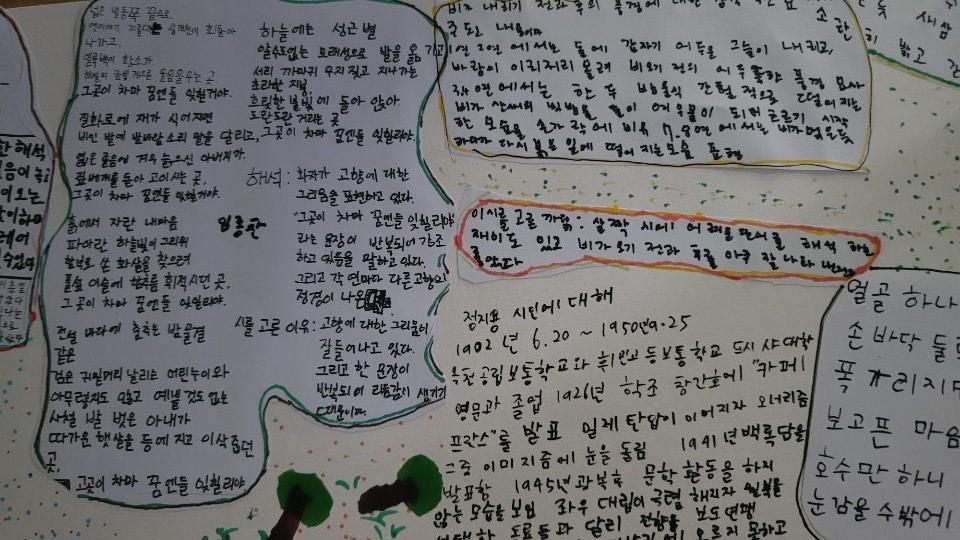 넓은 벌 동쪽 끝으로
옛이야기 지줄대는 실개천이 회돌아
나가고,
얼룩백이 황소가
해설피 금빛 게으른 울음을 우는 곳
그곳이 차마 꿈엔들 잊힐거야.
질화로에 재가 식어지면
비인 밭에 밤바람 소리 말을 달리고,
엷은 졸음에 겨운 늙으신 아버지가
짚베개를 돋아 고이시는 곳,
그곳이 차마 꿈엔들 잊힐거야.
흙에서 자란 내마음
파아란 하늘빛이 그리워
함부로 쏜 화살을 찾으려
풀섶 이슬에 함추름 휘적시던 곳,
그곳이 차마 꿈엔들 잊힐리야.
전설 바다에 춤추는 밤물결
같은
검은 귀밑머리 날리는 어린누이와
아무렇지도 않고 예쁠것도 없는
사철 발 벗은 아내가
따가운 햇살을 등에 지고 이삭 줍던
곳,
그곳이 차마 꿈엔들 잊힐리야
하늘에는 성근 별
알수없는 모래성으로 발을 옮기고
서리 까마귀 우지 짖고 지나가는
초라한 지붕,
흐릿한 불빛에 돌아 앉아
도란도란 거리는 곳
그곳이 차마 꿈엔들 잊힐리야.
해석: 화자가 고향에 대한
그리움을 표현하고 있다.
"그곳이 차마 꿈엔들 잊힐리야"
라는 문장이 반복되어 강조
하고 있음을 말하고 있다.
그리고 각 연마다 다른 고향의
정경이 나온
시를 고른 이유: 고향에 대한 그리움이
잘 들어나고 있다.
그리고 한 문장이
반복되어 리듬감이 생기기
때문이다.
비가 내리기 전과 후의 풍경에
소란
주도 내용이다
1연 2연 에서는 돌에 갑자기 어두운 그늘이 내리고,
바람이 이리저리 몰려 비오기 전의 어두운 풍경 묘사
3,4연에서는 한 두 방울식 간헐적으로 떨어지는
비가 산새의
한 모습을 손가락에 비유 7,8연에서는 비가 멈춘듯
하다가 다시 붉은 잎에 떨어지는 모습 표현
이시를 고른 까닭: 살짝 시에 어려운 단어를 해석 하는
재미도 있고 비가오기 전과 후를 아주 잘 나타
좋았다
정지용 시인에 대해
1902년 6.20 ~ 1950년 9.25
옥천공립보통학교와 휘문고등보통학교 도시샤 대학
영문과 졸업 1926년 학조 창간호에 "카페
프란스"를 발표 일제 탄압이 이어지자 모너리즘
그중 이미지즘에 눈을 돌림 1941년 백록담을
발표함 1945년 광복후 문학 활동을 하지
않는 모습을 보임 좌우 대립이 극렬해지자
달리 전향을 보도연맹
오르지 못하고
얼골 하나
손바닥 둘로
폭 가리지만
보고픈 마음
호수만 하니
눈감을 수밖에